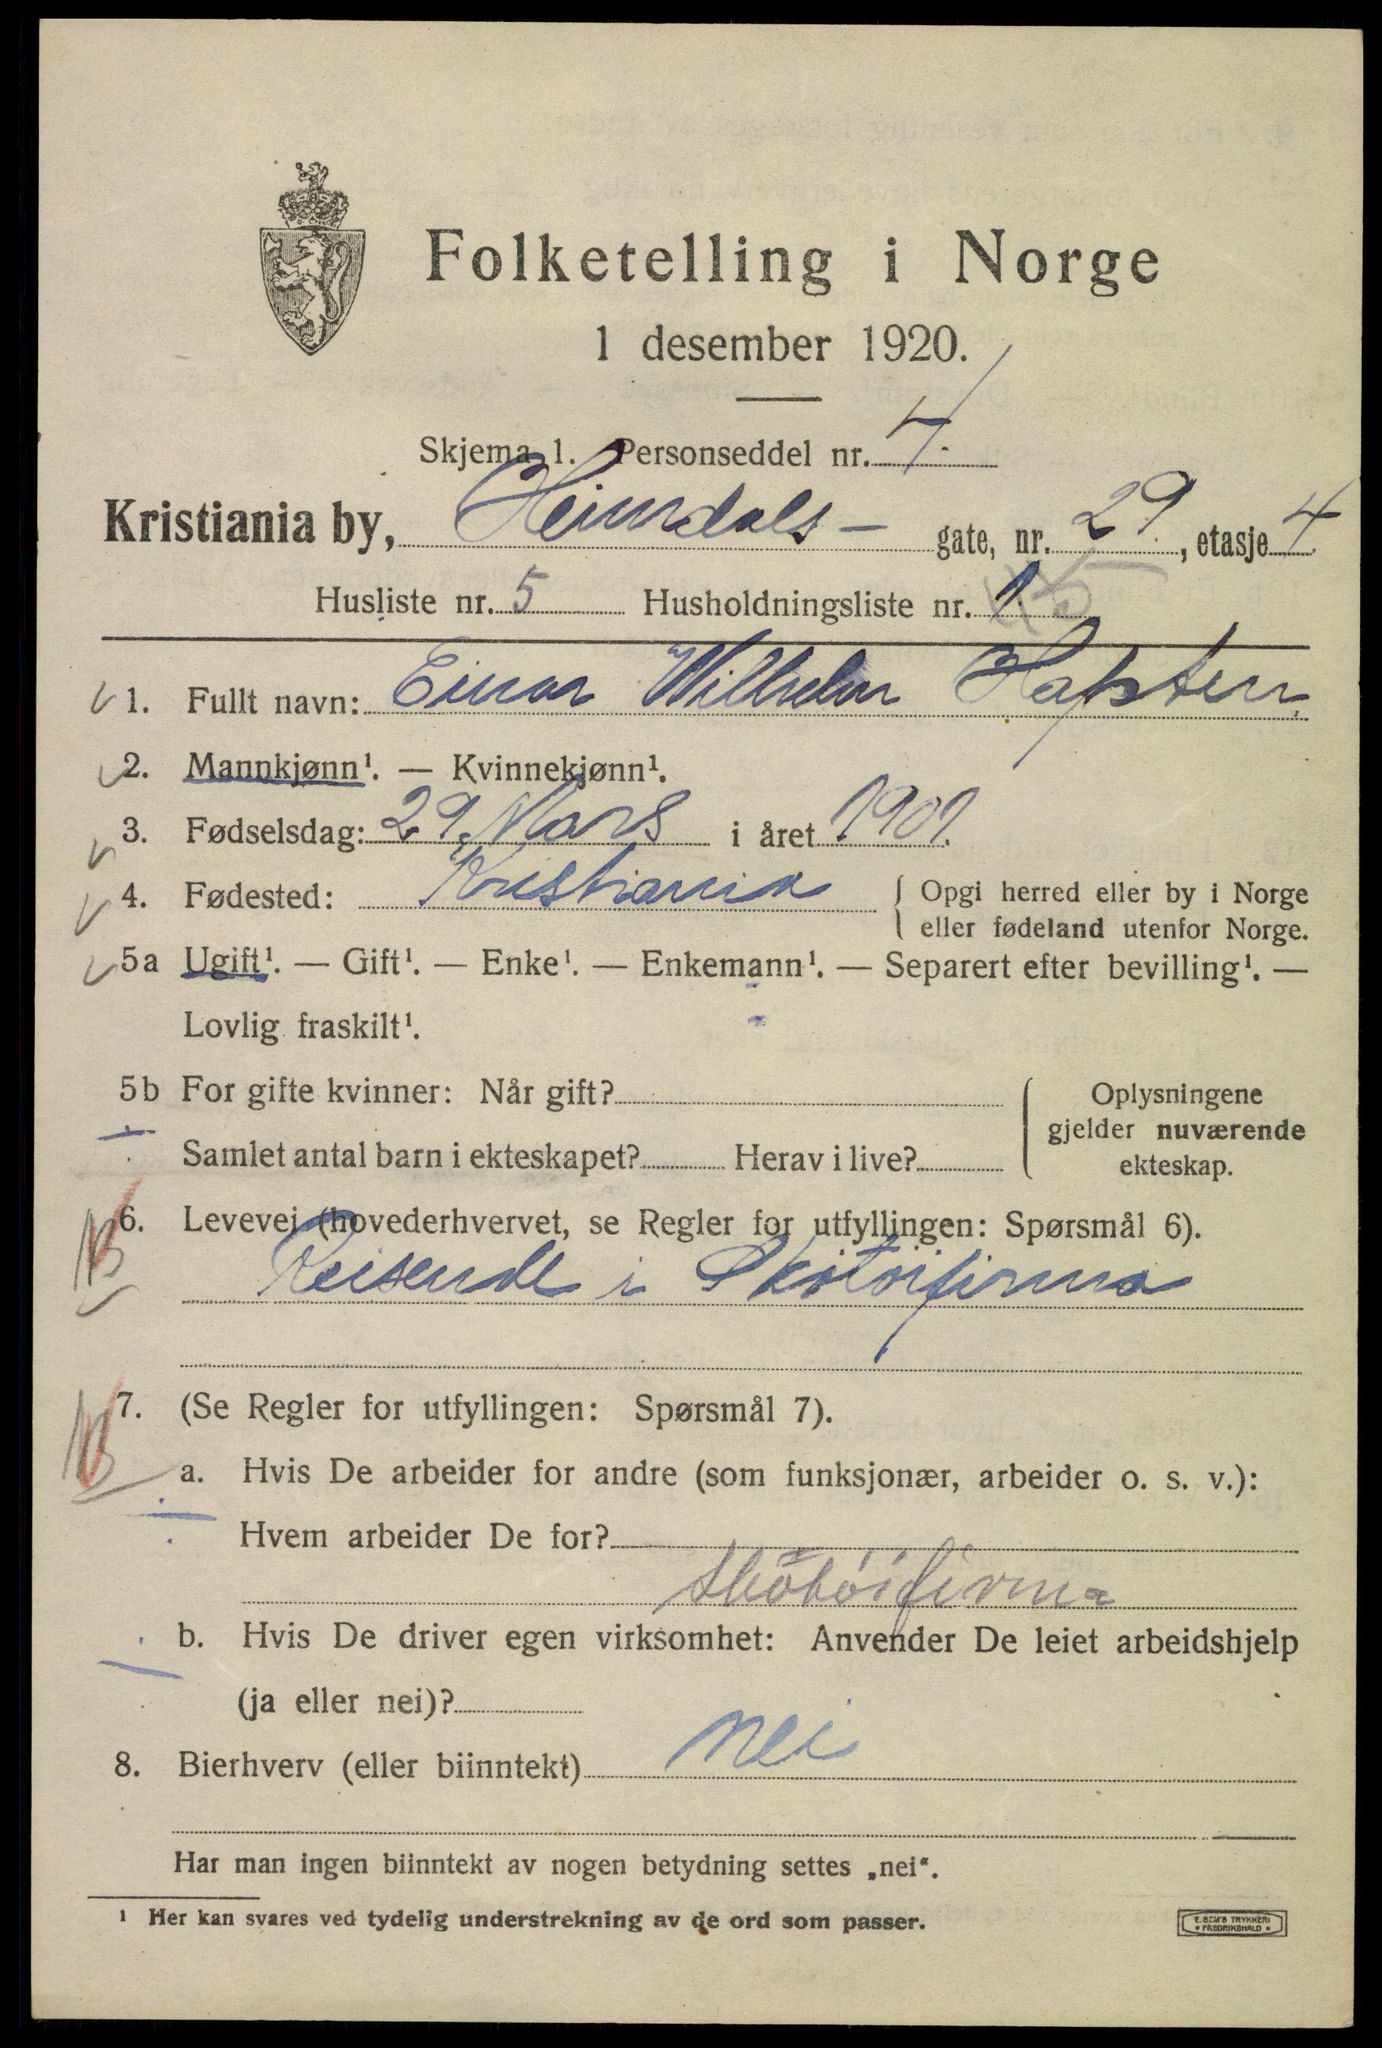 Folketelling i Norge
1 desember 1920.
Skjema 1. Personseddel nr. 4.
Kristiania by, Heimdals- gate, nr. 29, etasje 4
Husliste nr. 5 Husholdningsliste nr.
1. Fullt navn: Einar Wilhelm
2. Mannkjønn¹. — Kvinnekjønn¹.
3. Fødselsdag: 29. Mars i året 1901.
4. Fødested: Kristiania { Opgi herred eller by i Norge
eller fødeland utenfor Norge.
5a Ugift¹. — Gift¹. — Enke¹. — Enkemann¹. — Separert efter bevilling¹. —
Lovlig fraskilt¹.
5b For gifte kvinner: Når gift?
Samlet antal barn i ekteskapet? Herav i live?
Oplysningene
gjelder nuværende
ekteskap.
6. Levevei (hovederhvervet, se Regler for utfyllingen: Spørsmål 6).
Reisende i Skotøifirma
7. (Se Regler for utfyllingen: Spørsmål 7).
a. Hvis De arbeider for andre (som funksjonær, arbeider o. s. v.):
Hvem arbeider De for?
skotöifirma
b. Hvis De driver egen virksomhet: Anvender De leiet arbeidshjelp
(ja eller nei)?
8. Bierhverv (eller biinntekt) nei
Har man ingen biinntekt av nogen betydning settes „nei“.
¹ Her kan svares ved tydelig understrekning av de ord som passer.
E. SEM'S TRYKKERI
* FREDRIKSHALD *